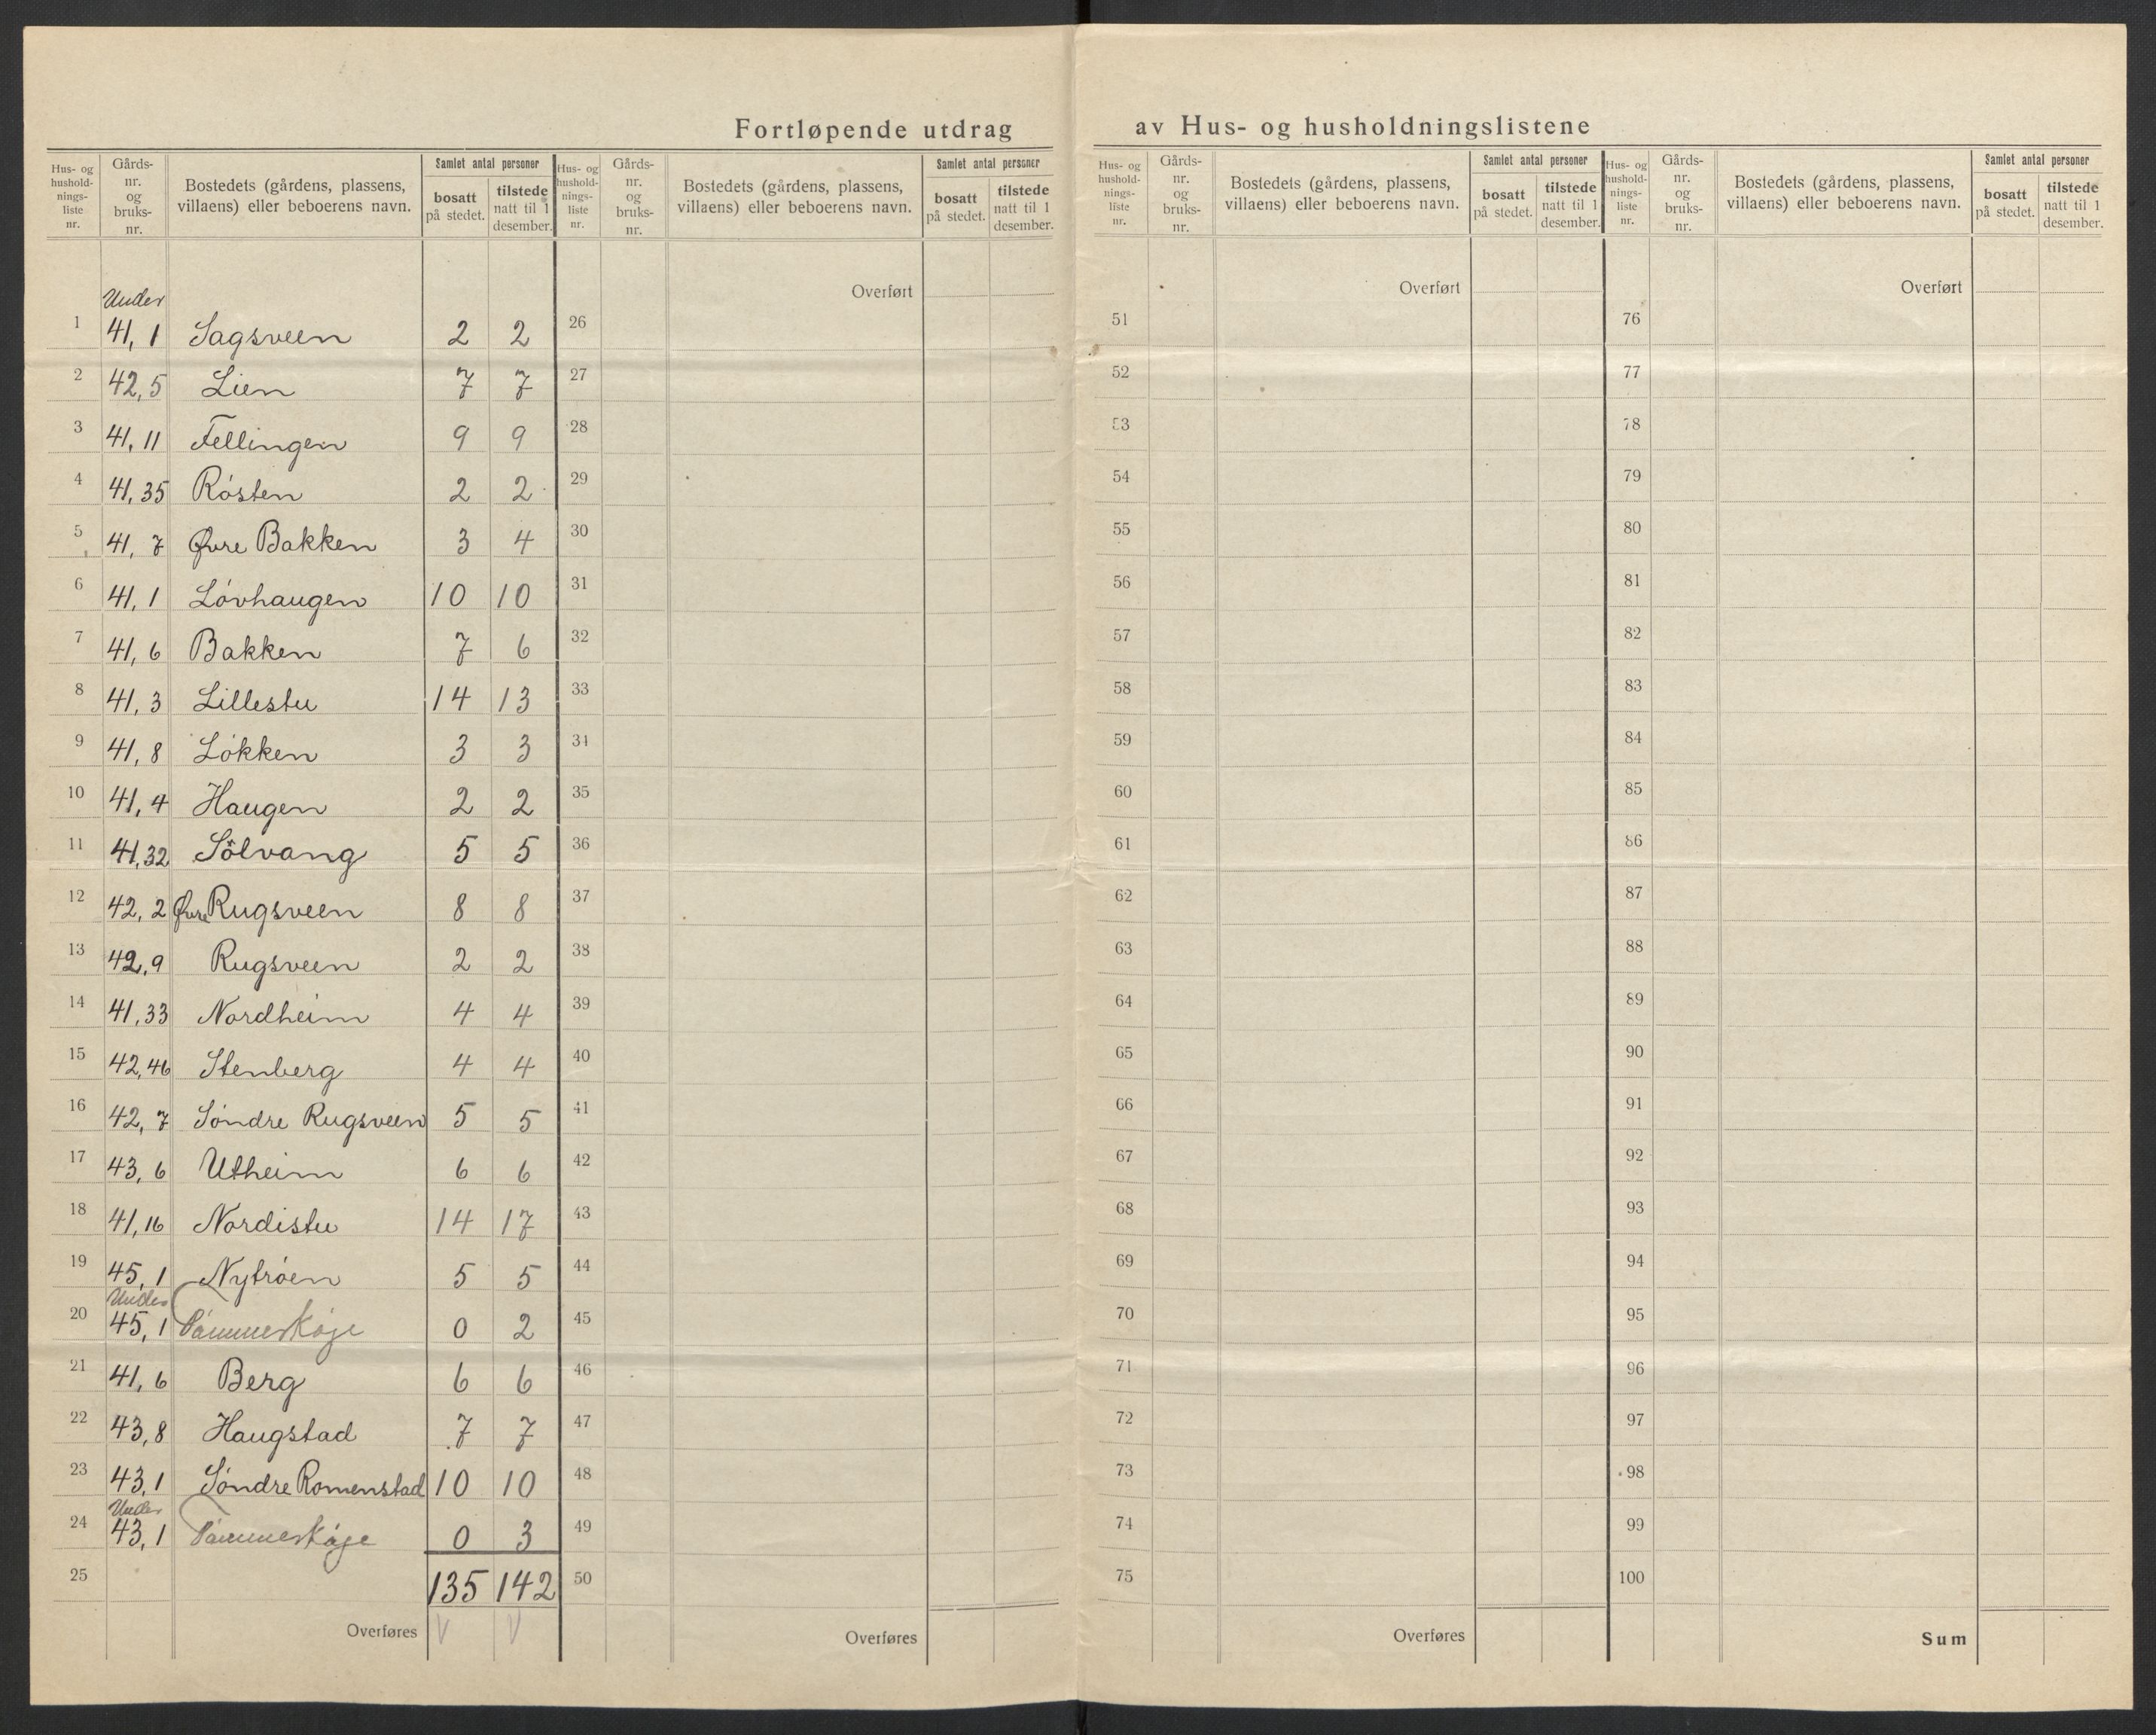 Fortløpende utdrag av Hus- og husholdningslistene
Hus- og hushold-nings-liste nr. | Gårds-nr. og bruks-nr. | Bostedets (gårdens, plassens, villaens) eller beboerens navn. | Samlet antal personer bosatt på stedet. | tilstede natt til 1 desember.
Hus- og hushold-nings-liste nr. | Gårds-nr. og bruks-nr. | Bostedets (gårdens, plassens, villaens) eller beboerens navn. | Samlet antal personer bosatt på stedet. | tilstede natt til 1 desember.
Hus- og hushold-nings-liste nr. | Gårds-nr. og bruks-nr. | Bostedets (gårdens, plassens, villaens) eller beboerens navn. | Samlet antal personer bosatt på stedet. | tilstede natt til 1 desember.
Hus- og hushold-nings-liste nr. | Gårds-nr. og bruks-nr. | Bostedets (gårdens, plassens, villaens) eller beboerens navn. | Samlet antal personer bosatt på stedet. | tilstede natt til 1 desember.
Overført Overført Overført
Under
1 41,1 Sagsveen 2 2 26 51 76
2 42,5 Lien 7 7 27 52 77
3 41,11 Fellingen 9 9 28 53 78
4 41,35 Rósten 2 2 29 54 79
5 41,7 Øvre Bakken 3 4 30 55 80
6 41,1 Lóvhaugen 10 10 31 56 81
7 41,6 Bakken 7 6 32 57 82
8 41,3 Lillestu 14 13 33 58 83
9 41,8 Lókken 3 3 34 59 84
10 41,4 Haugen 2 2 35 60 85
11 41,32 Sólvang 5 5 36 61 86
12 42,2 Øvre Rugsveen 8 8 37 62 87
13 42,9 Rugsveen 2 2 38 63 88
14 41,33 Nordheim 4 4 39 64 89
15 42,46 Stenberg 4 4 40 65 90
16 42,7 Sóndre Rugsveen 5 5 41 66 91
17 43,6 Utheim 6 6 42 67 92
18 41,16 Nordistu 14 17 43 68 93
19 45,1 Nytróen 5 5 44 69 94
Under
20 45,1 Tømmerkoje 0 2 45 70 95
21 41,6 Berg 6 6 46 71 96
22 43,8 Haugstad 7 7 47 72 97
23 43,1 Sóndre Romenstad 10 10 48 73 98
Under
24 43,1 Tømmerkoje 0 3 49 74 99
25 135 142 50 75 100
Overføres V V Overføres Overføres Sum